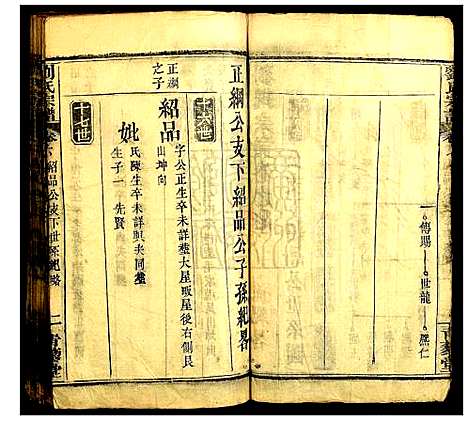 傳賜 世龍 歷仁
正綱公支下紹品公子孫紀畧
十六世
正綱之子
紹品
字公正生卒未詳葬大屋塅屋後右側艮山坤向
妣
氏陳生卒未詳與夫同塋
生子一 先賢
十七世
劉氏宗譜 卷六 紹品公支下世系紀略 一 青藜堂
青藜堂